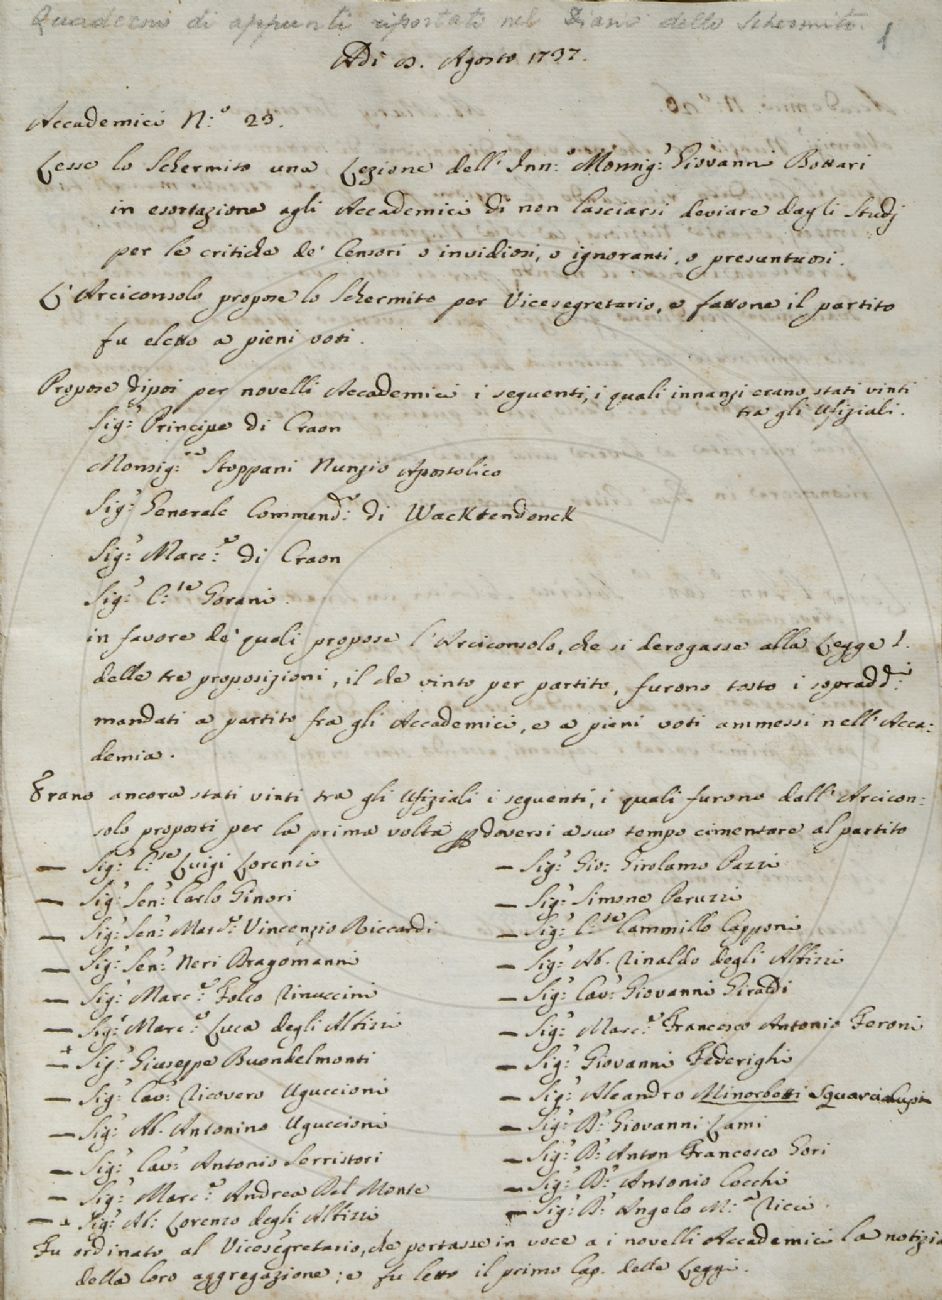 Quaderno di appunti riportati nel Diario dello Schermito.
1
Adì 8. Agosto 1737.
Accademici N:º 23.
Lesse lo Schermito una Lezione dell' Inn:º Monsig: Giovanni Bottari
in esortazione agli Accademici di non lasciarsi deviare dagli Studj
per le critiche de' Censori o invidiosi, o ignoranti, o presuntuosi.
L'Arciconsolo propose lo Schermito per Vicesegretario, e fattone il partito
fu eletto a pieni voti.
Propose dipoi per novelli Accademici i seguenti, i quali innanzi erano stati vinti
tra gli Ufiziali.
Sig:r Principe di Craon
Monsig:re Stoppani Nunzio Apostolico
Sig:r Generale Commend:r di Wacktendonck
Sig:r Marc:e di Craon
Sig:r C:te Gorani
in favore de' quali propose l'Arciconsolo, che si derogasse alla Legge
delle tre proposizioni, il che vinto per partito, furono tosto i sopradd:i
mandati a partito fra gli Accademici, e a pieni voti ammessi nell' Acca-
demia.
Erano ancora stati vinti tra gli Ufiziali i seguenti, i quali furono dall' Arcicon-
solo proposti per la prima volta p doversi a suo tempo cimentare al partito
— Sig:r C:te Luigi Lorenzi
— Sig:r Sen:r Carlo Ginori
— Sig:r Sen:r Marc:e Vincenzio Riccardi
— Sig:r Sen:r Neri Dragomanni
— Sig:r Marc:e Folco Rinuccini
— Sig:r Marc:e Luca degli Albizzi
— Sig:r Giuseppe Buondelmonti
— Sig:r Cav:r Ricovero Uguccioni
— Sig:r Ab. Antonino Uguccioni
— Sig:r Cav:r Antonio Serristori
— Sig:r Marc:e Andrea Del Monte
— Sig:r Ab: Lorenzo degli Albizzi
— Sig:r Gio: Girolamo Pazzi
— Sig:r Simone Peruzzi
— Sig:r C:te Cammillo Capponi
— Sig:r Ab. Rinaldo degli Albizzi
— Sig:r Cav: Giovanni Giraldi
— Sig:r Marc:e Francesco Antonio Feroni
— Sig:r Giovanni Federighi
— Sig:r Aleandro Minorbetti Squarcialupi
— Sig:r D:r Giovanni Lami
— Sig:r D:r Anton Francesco Gori
— Sig:r D:r Antonio Cocchi
— Sig:r D:r Angelo M:a Ricci
Fu ordinato al Vicesegretario, che portasse in voce a i novelli Accademici la notizia
della loro aggregazione; e fu letto il primo Cap. delle Leggi.